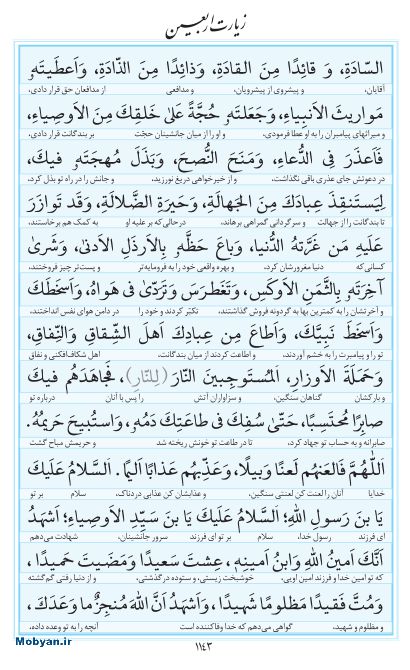 زیارت اربعین
السّادَةِ، وَ قائِدًا مِنَ القادَةِ، وَذائِدًا مِنَ الذّادَةِ، وَاَعطَيتَهُو
آقایان، و پیشروی از پیشرویان، و مدافعی از مدافعان حق قرار دادی،
مَواريثَ الاَنبِياءِ، وَجَعَلتَهُو حُجَّةً عَلىٰ خَلقِكَ مِنَ الاَوصِياءِ،
و میراثهای پیامبران را به او عطا فرمودی، و او را از میان جانشینان حجّت بر بندگانت قرار دادی،
فَاَعذَرَ فِى الدُّعاءِ، وَمَنَحَ النُّصحَ، وَبَذَلَ مُهجَتَهُو فيكَ،
در دعوتش جای عذری باقی نگذاشت، و از خیرخواهی دریغ نورزید، و جانش را در راه تو بذل کرد،
لِيَستَنقِذَ عِبادَكَ مِنَ الجَهالَةِ، وَحَيرَةِ الضَّلالَةِ، وَقَد تَوازَرَ
تا بندگانت را از جهالت و سرگردانی گمراهی برهاند، درحالی‌که بر علیه او به کمک هم برخاستند،
عَلَيهِ مَن غَرَّتهُ الدُّنيا، وَباعَ حَظَّهُو بِالاَرذَلِ الاَدنىٰ، وَشَرىٰ
کسانی‌که دنیا مغرورشان کرد، و بهره واقعی خود را به فرومایه‌تر و پست‌تر چیز فروختند،
آخِرَتَهُو بِالثَّمَنِ الاَوكَسِ، وَتَغَطرَسَ وَتَرَدّىٰ فى هَواهُ، وَاَسخَطَكَ
و آخرتشان را به کمترین بها به گردونه فروش گذاشتند، تکبّر کردند و خود را در دامن هوای نفس انداختند،
وَاَسخَطَ نَبِيَّكَ، وَاَطاعَ مِن عِبادِكَ اَهلَ الشِّقاقِ وَالنِّفاقِ،
تو را و پیامبرت را به خشم آوردند، و اطاعت کردند از میان بندگانت، اهل شکاف‌افکنی و نفاق
وَحَمَلَةَ الاَوزارِ، المُستَوجِبينَ النّارَ (لِلنّارِ)، فَجاهَدَهُم فيكَ
و بارکشان گناهان سنگین، و سزاواران آتش را پس با آنان درباره تو
صابِرًا مُحتَسِبًا، حَتّىٰ سُفِكَ فى طاعَتِكَ دَمُهُو، وَاستُبيحَ حَريمُهُو.
صابرانه و به حساب تو جهاد کرد، تا در طاعت تو خونش ریخته شد و حریمش مباح گشت
اَللّٰهُمَّ فَالعَنهُم لَعنًا وَبيلًا، وَعَذِّبهُم عَذابًا اَليمًا. اَلسَّلامُ عَلَيكَ
خدایا آنان را لعنت کن لعنتی سنگین، و عذابشان کن عذابی دردناک، سلام بر تو
يَا بنَ رَسولِ اللّٰهِ؛ اَلسَّلامُ عَلَيكَ يَا بنَ سَيِّدِ الاَوصِياءِ؛ اَشهَدُ
ای فرزند رسول خدا، سلام بر تو ای فرزند سرور جانشینان، شهادت می‌دهم
اَنَّكَ اَمينُ اللّٰهِ وَابنُ اَمينِهِ، عِشتَ سَعيدًا وَمَضَيتَ حَميدًا،
که تو امین خدا و فرزند امین اویی، خوشبخت زیستی، و ستوده درگذشتی، و از دنیا رفتی گم‌گشته
وَمُتَّ فَقيدًا مَظلومًا شَهيدًا، وَاَشهَدُ اَنَّ اللّٰهَ مُنجِزٌ ما وَعَدَكَ،
و مظلوم و شهید، گواهی می‌دهم که خدا وفاکننده است آنچه را به تو وعده داده،
١١٤٣
Mobyan.ir